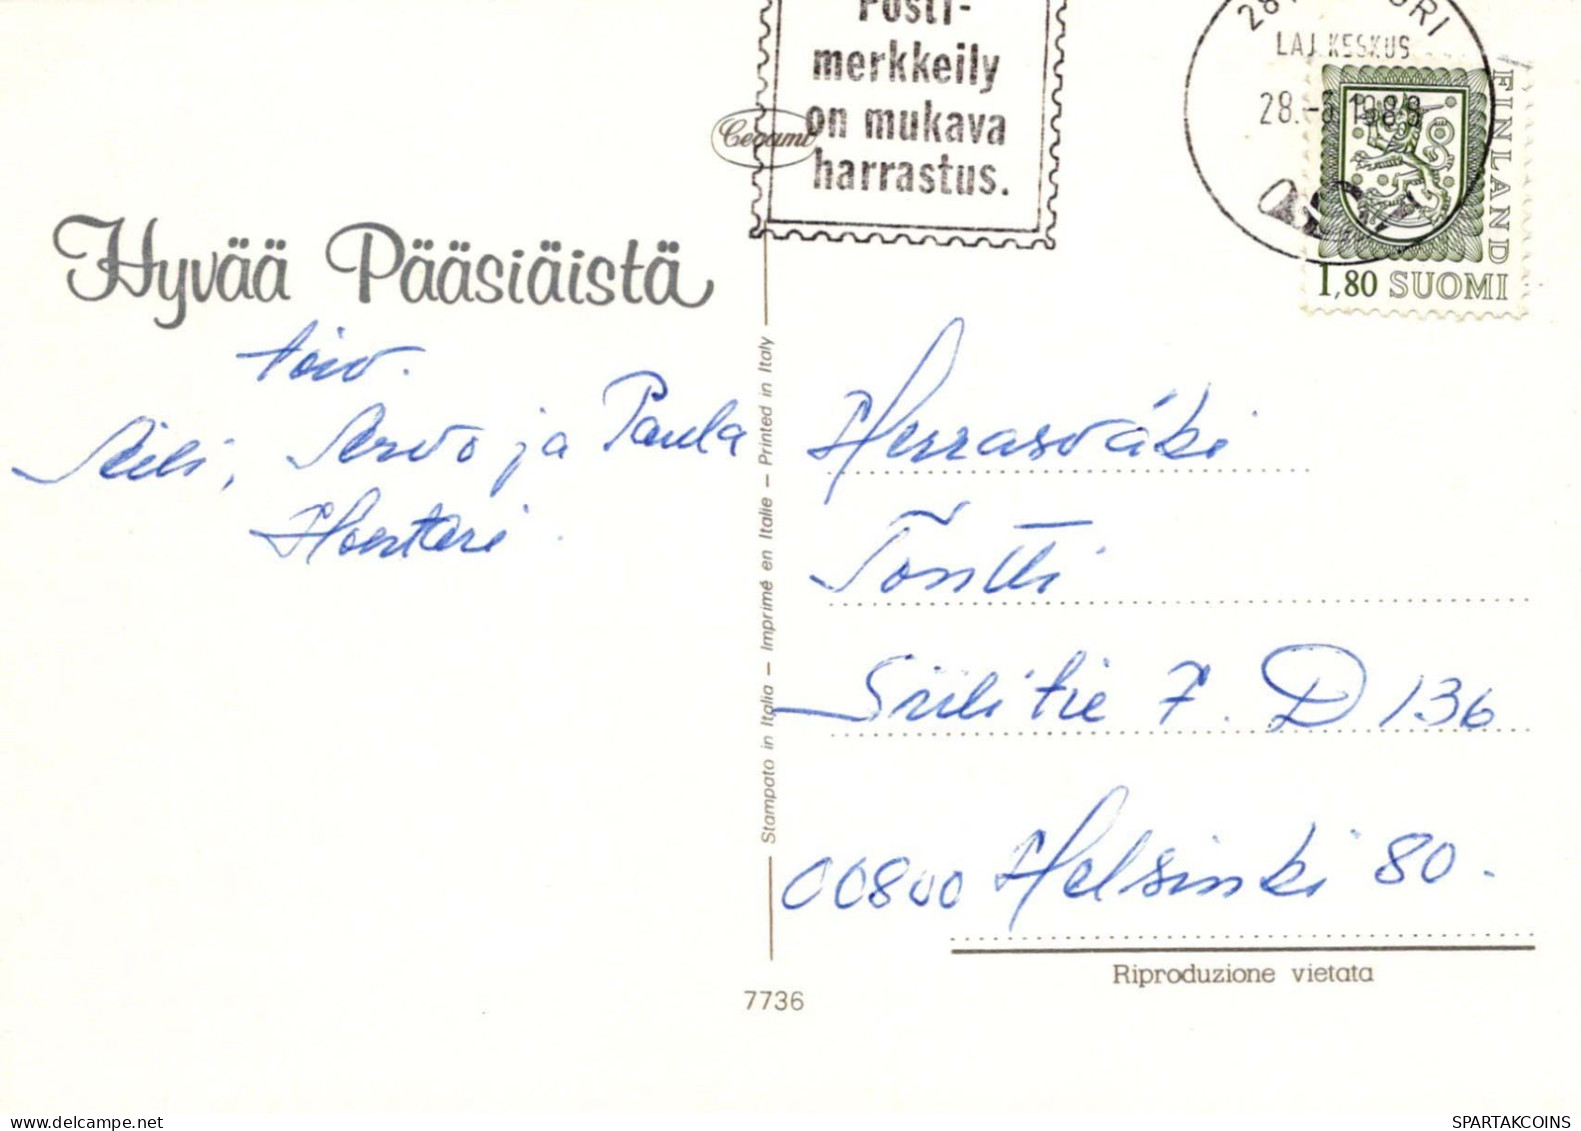 Posti-
merkkeily
on mukava
harrastus.
Cecami
LAJ.KESKUS
28.-3.1988
FINLAND
1,80 SUOMI
Hyvää Pääsiäistä
toiv.
Aili, Arvo ja Paula
Herrasväki
Tontti
Siilitie 7. D 136
00800 Helsinki 80.
Stampato in Italia – Imprimé en Italie – Printed in Italy
Riproduzione vietata
7736
www.delcampe.net
SPARTAKCOINS